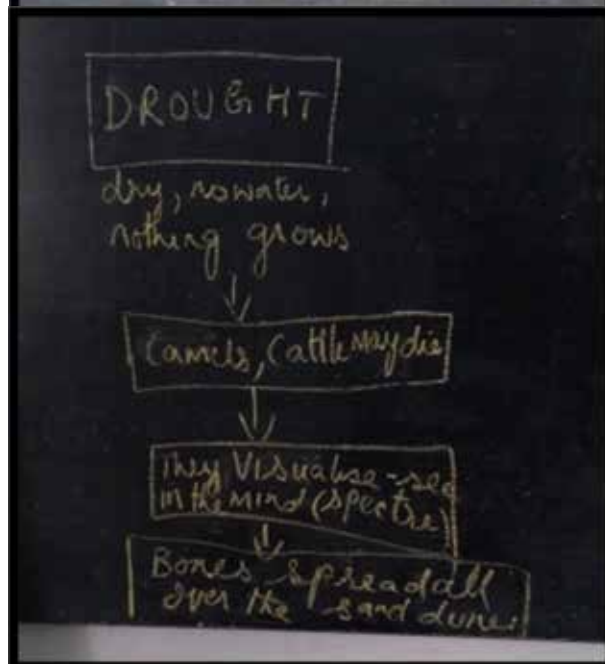 DROUGHT
dry, no water,
nothing grows
Camels, Cattle may die
They Visualise - see
in the mind (spectre)
Bones spread all
over the sand dune.